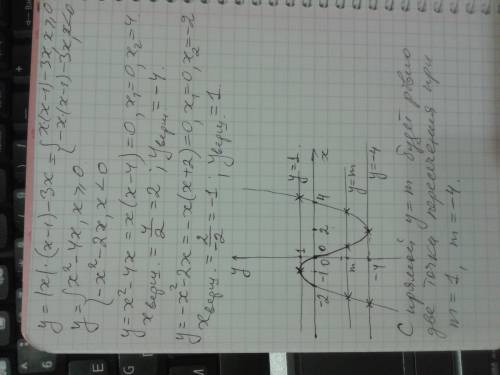 y=|x|·(x-1)-3x={x(x-1)-3x, x≥0
{-x(x-1)-3x, x<0
y={x²-4x, x≥0
{-x²-2x, x<0
y=x²-4x=x(x-4)=0, x₁=0, x₂=4
xверш.=4/2=2; yверш.=-4.
y=-x²-2x=-x(x+2)=0, x₁=0, x₂=-2
xверш.=2/-2=-1; yверш.=1.
y
1
y=1
-2 -1 0 2 4 x
m
y=m
-4
y=-4
С прямой y=m будет ровно
две точки пересечения при
m=1, m=-4.